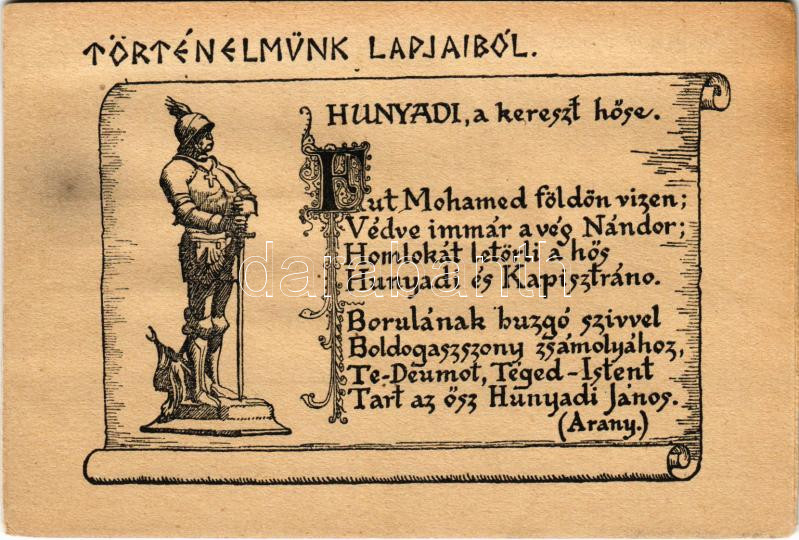 TÖRTÉNELMÜNK LAPJAIBÓL.
HUNYADI, a kereszt hőse.
Fut Mohamed földön vizen;
Védve immár a vég Nándor;
Homlokát letörli a hős
Hunyadi és Kapisztráno.
Borulának buzgó szivvel
Boldogaszszony zsámolyához,
Te-Deumot, Téged-Istent
Tart az ősz Hunyadi János.
(Arany.)
darabanth